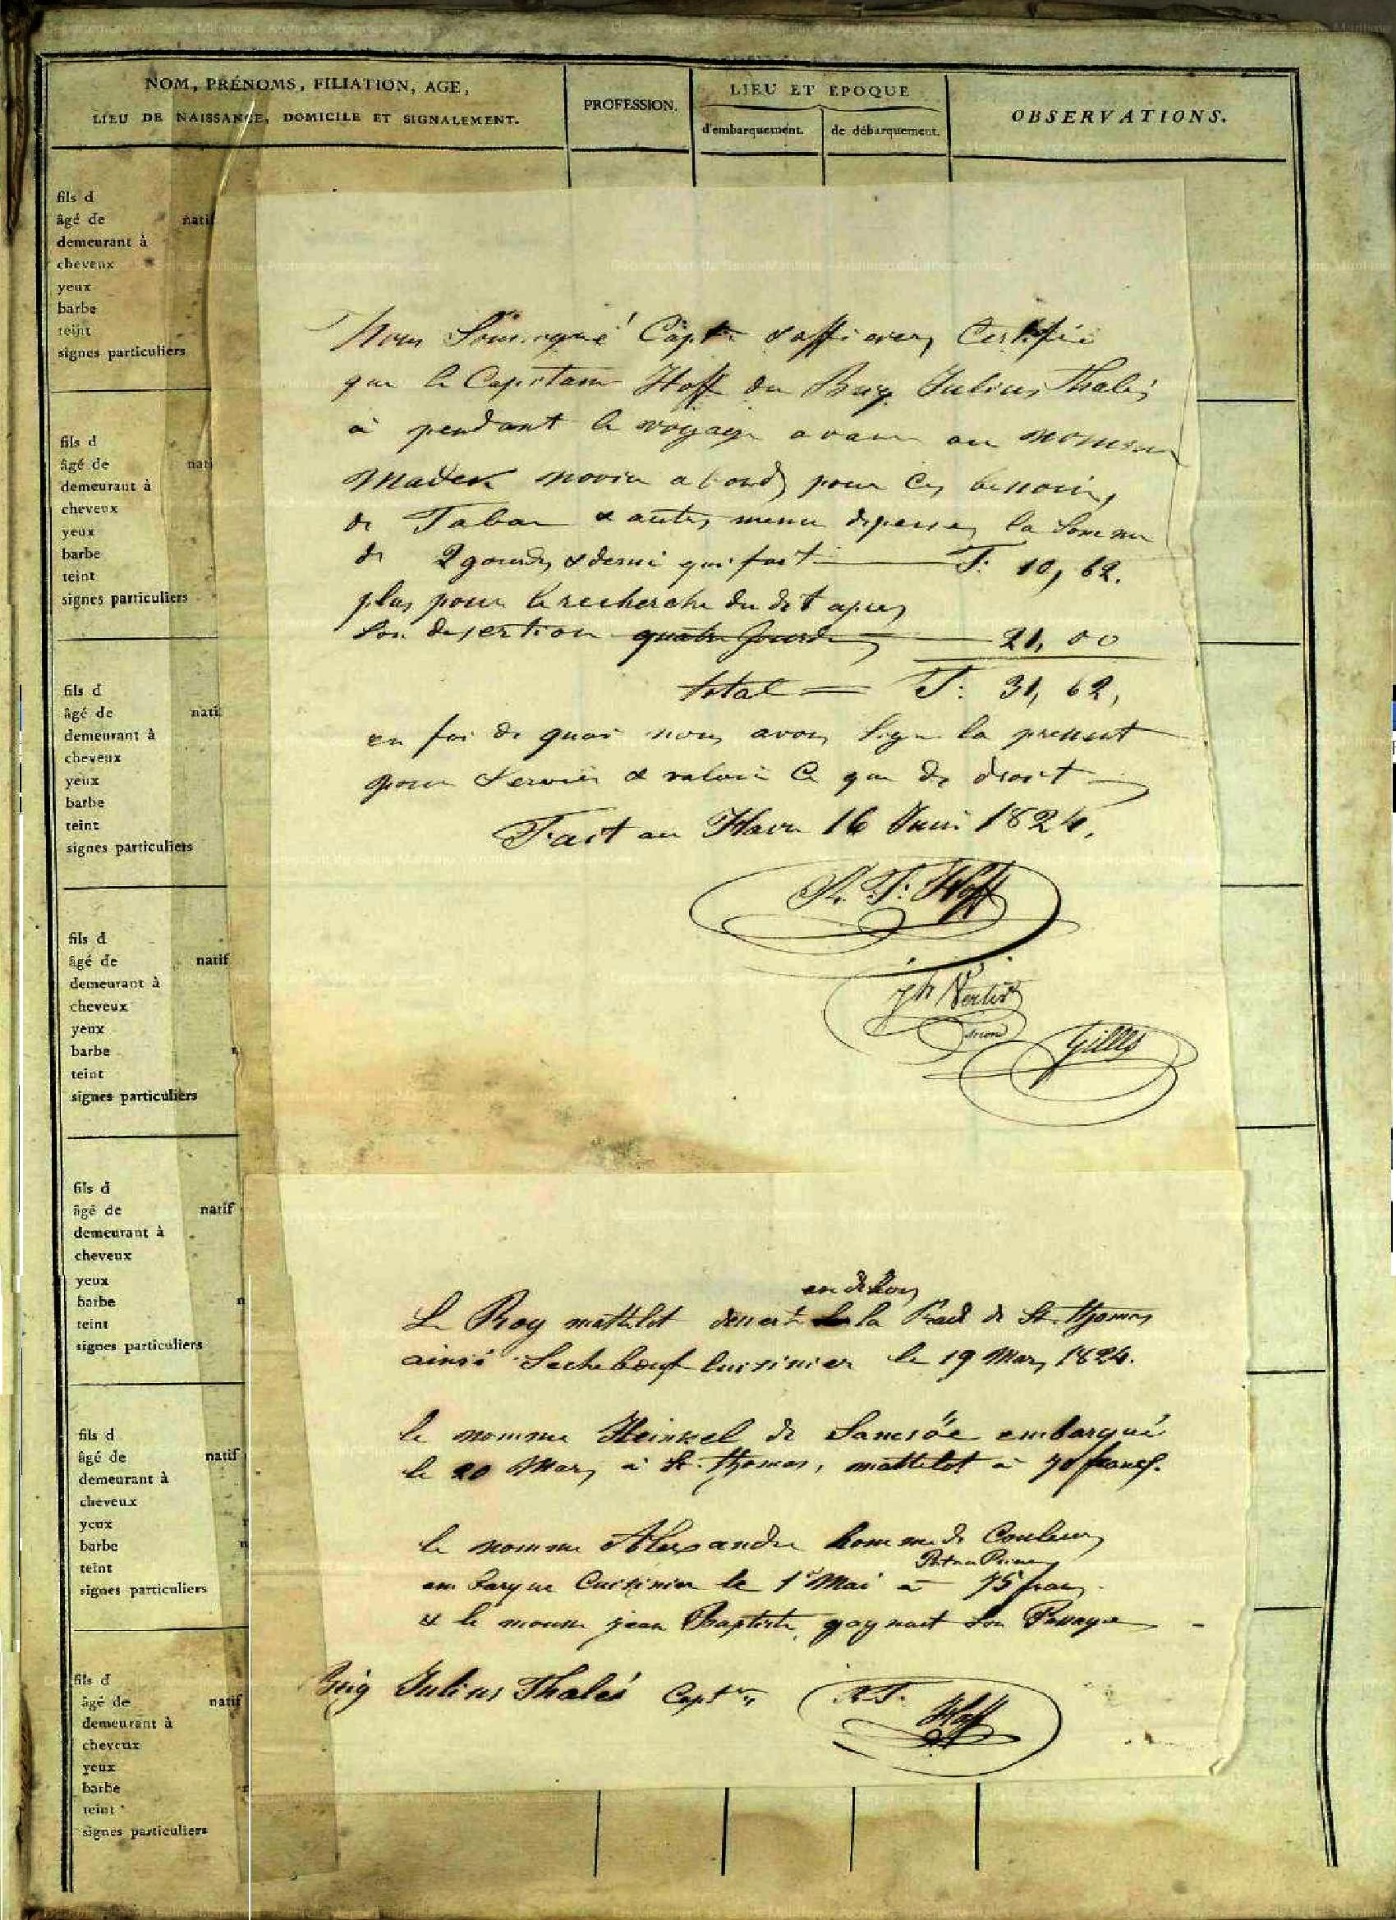 NOM, PRÉNOMS, FILIATION, AGE,
LIEU DE NAISSANCE, DOMICILE ET SIGNALEMENT.
PROFESSION.
LIEU ET EPOQUE
d'embarquement.
de débarquement.
OBSERVATIONS.
fils d
âgé de natif
demeurant à
cheveux
yeux
barbe
teint
signes particuliers
fils d
âgé de nati
demeurant à
cheveux
yeux
barbe
teint
signes particuliers
fils d
âgé de natif
demeurant à
cheveux
yeux
barbe
teint
signes particuliers
fils d
âgé de natif
demeurant à
cheveux
yeux
barbe
teint
signes particuliers
fils d
âgé de natif
demeurant à
cheveux
yeux
barbe
teint
signes particuliers
fils d
âgé de natif
demeurant à
cheveux
yeux
barbe
teint
signes particuliers
fils d
âgé de natif
demeurant à
cheveux
yeux
barbe
teint
signes particuliers
Nous Soussigné Captn & officiers Certifié
que le Capitaine Hoff du Brig Julius Thalés
à pendant le voyage avancé au nommé
novice a bord pour ces besoins
de Tabac & autres menu depenses la Somme
de 2 gourdes & demi qui fait F: 10,62.
plus pour le recherche du dit apres
Son desertion quatre gourdes 21,00
total = F: 31,62,
en foi de quoi nous avons Signé la present
pour Servir & valoir Ce que de droit
Fait au Havre 16 Juin 1824.
Hoff
Jh
Second
Gilles
en dehors
Le Roy mattelot deserté la Rade de St. Thomas
ainsi Sechebœuf Cuisinier le 19 Mars 1824.
le nomme Heinkel de embarqué
le 20 Mars à St. Thomas, mattelot à 70 francs.
le nomme Alexandre homme de Couleur
Port au Prince
embarque Cuisinier le 1r Mai à 75 francs.
& le mousse jean Baptiste, gagnant Son Passage
Brig Julius Thalés Captn
Hoff